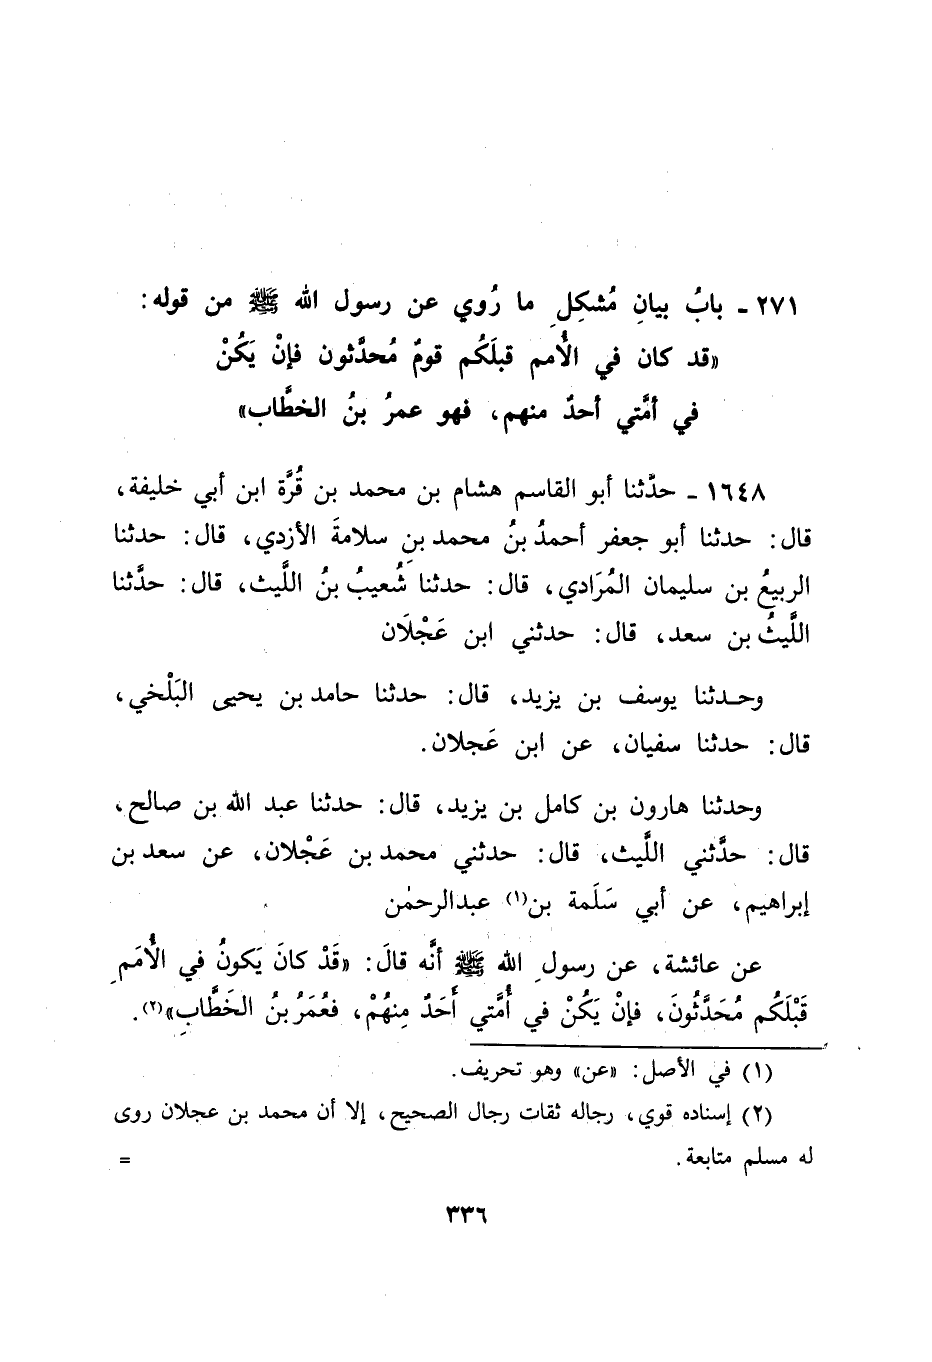 ٢٧١ ـ بابُ بيانِ مُشكِلِ ما رُوي عن رسول الله ﷺ من قوله:
«قد كان في الأُمم قبلَكُم قومٌ مُحدَّثون فإنْ يَكُنْ
في أمَّتي أحدٌ منهم، فهو عمرُ بنُ الخطَّاب»
١٦٤٨ ـ حدَّثنا أبو القاسم هشام بن محمد بن قُرَّة ابن أبي خليفة،
قال: حدثنا أبو جعفر أحمدُ بنُ محمد بنِ سلامةَ الأزدي، قال: حدثنا
الربيعُ بن سليمان المُرَادي، قال: حدثنا شُعيبُ بنُ اللَّيث، قال: حدَّثنا
اللَّيثُ بن سعد، قال: حدثني ابن عَجْلَان
وحدثنا يوسف بن يزيد، قال: حدثنا حامد بن يحيى البَلْخي،
قال: حدثنا سفيان، عن ابن عَجلان.
وحدثنا هارون بن كامل بن يزيد، قال: حدثنا عبد الله بن صالح،
قال: حدَّثني اللَّيث، قال: حدثني محمد بن عَجْلان، عن سعد بن
إبراهيم، عن أبي سَلَمة بن(١) عبدالرحمٰن
عن عائشة، عن رسولِ الله ﷺ أنَّه قالَ: «قَدْ كانَ يَكونُ في الأُمَمِ
قَبْلَكُم مُحَدَّثُونَ، فإنْ يَكُنْ في أُمَّتي أَحَدٌ مِنهُمْ، فعُمَرُ بنُ الخَطَّابِ»(٢).
(١) في الأصل: «عن» وهو تحريف.
(٢) إسناده قوي، رجاله ثقات رجال الصحيح، إلا أن محمد بن عجلان روى
له مسلم متابعة. =
٣٣٦